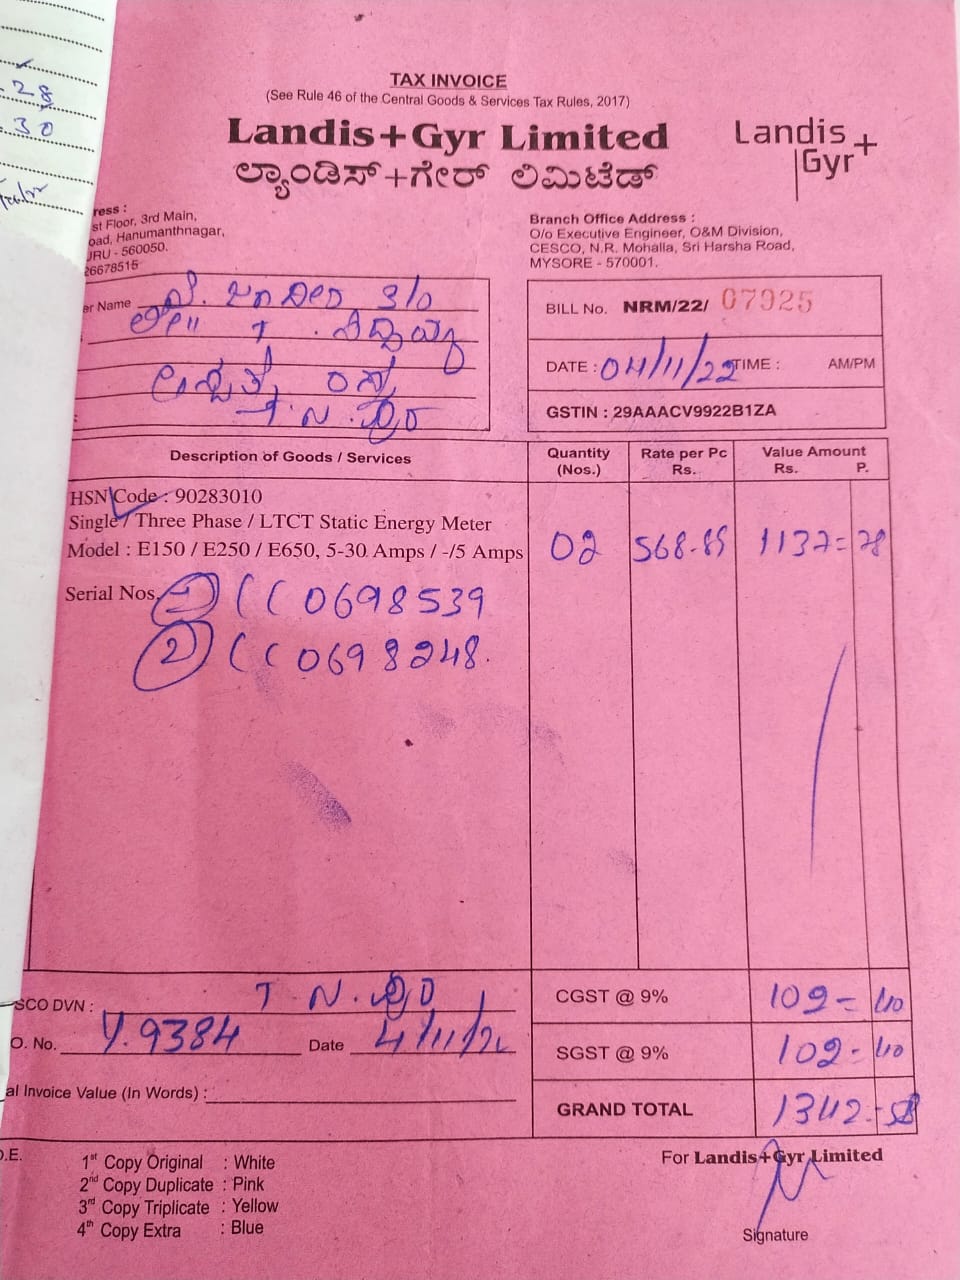 28
30
TAX INVOICE
(See Rule 46 of the Central Goods & Services Tax Rules, 2017)
Landis+Gyr Limited
ಲ್ಯಾಂಡಿಸ್+ಗೇರ್ ಲಿಮಿಟೆಡ್
Landis+
Gyr
ress :
st Floor, 3rd Main,
oad, Hanumanthnagar,
URU - 560050.
26678515
Branch Office Address :
O/o Executive Engineer, O&M Division,
CESCO, N.R. Mohalla, Sri Harsha Road,
MYSORE - 570001.
er Name S/o
BILL No. NRM/22/ 07925
DATE : 04/11/22 TIME : AM/PM
GSTIN : 29AAACV9922B1ZA
Description of Goods / Services
Quantity (Nos.)
Rate per Pc Rs.
Value Amount Rs. P.
HSN Code : 90283010
Single / Three Phase / LTCT Static Energy Meter
Model : E150 / E250 / E650, 5-30 Amps / -/5 Amps 02 568.89 1137=78
Serial Nos. 1 CC0698539
2 CC0698248.
SCO DVN : T.N.ಪುರ
O. No. Y.9384 Date 4/11/22
al Invoice Value (In Words) :
CGST @ 9% 102=40
SGST @ 9% 102=40
GRAND TOTAL 1342=58
O.E.
1st Copy Original : White
2nd Copy Duplicate : Pink
3rd Copy Triplicate : Yellow
4th Copy Extra : Blue
For Landis+Gyr Limited
Signature